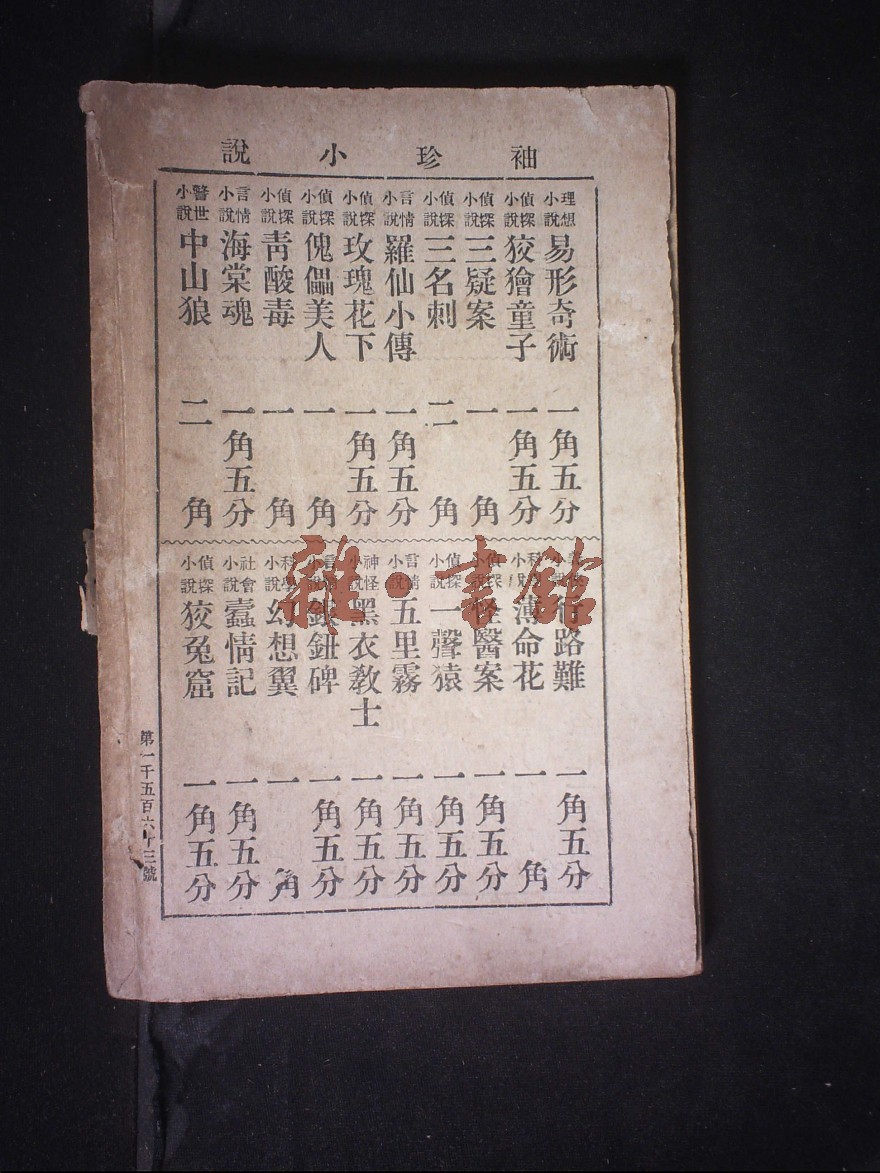 袖珍小說
理想小說 易形奇術 一角五分
偵探小說 狡獪童子 一角五分
偵探小說 三疑案 一角
偵探小說 三名刺 二角
言情小說 羅仙小傳 一角五分
偵探小說 玫瑰花下 一角五分
偵探小說 傀儡美人 一角
偵探小說 青酸毒 一角
言情小說 海棠魂 一角五分
警世小說 中山狼 二角
小說 行路難 一角五分
小說 薄命花 一角
偵探小說 怪醫案 一角五分
偵探小說 一聲猿 一角五分
言情小說 五里霧 一角五分
神怪小說 黑衣教士 一角五分
小說 銀鈕碑 一角五分
科學小說 幻想翼 一角
社會小說 蠹情記 一角五分
偵探小說 狡兔窟 一角五分
第一千五百六十三號
雜·書館